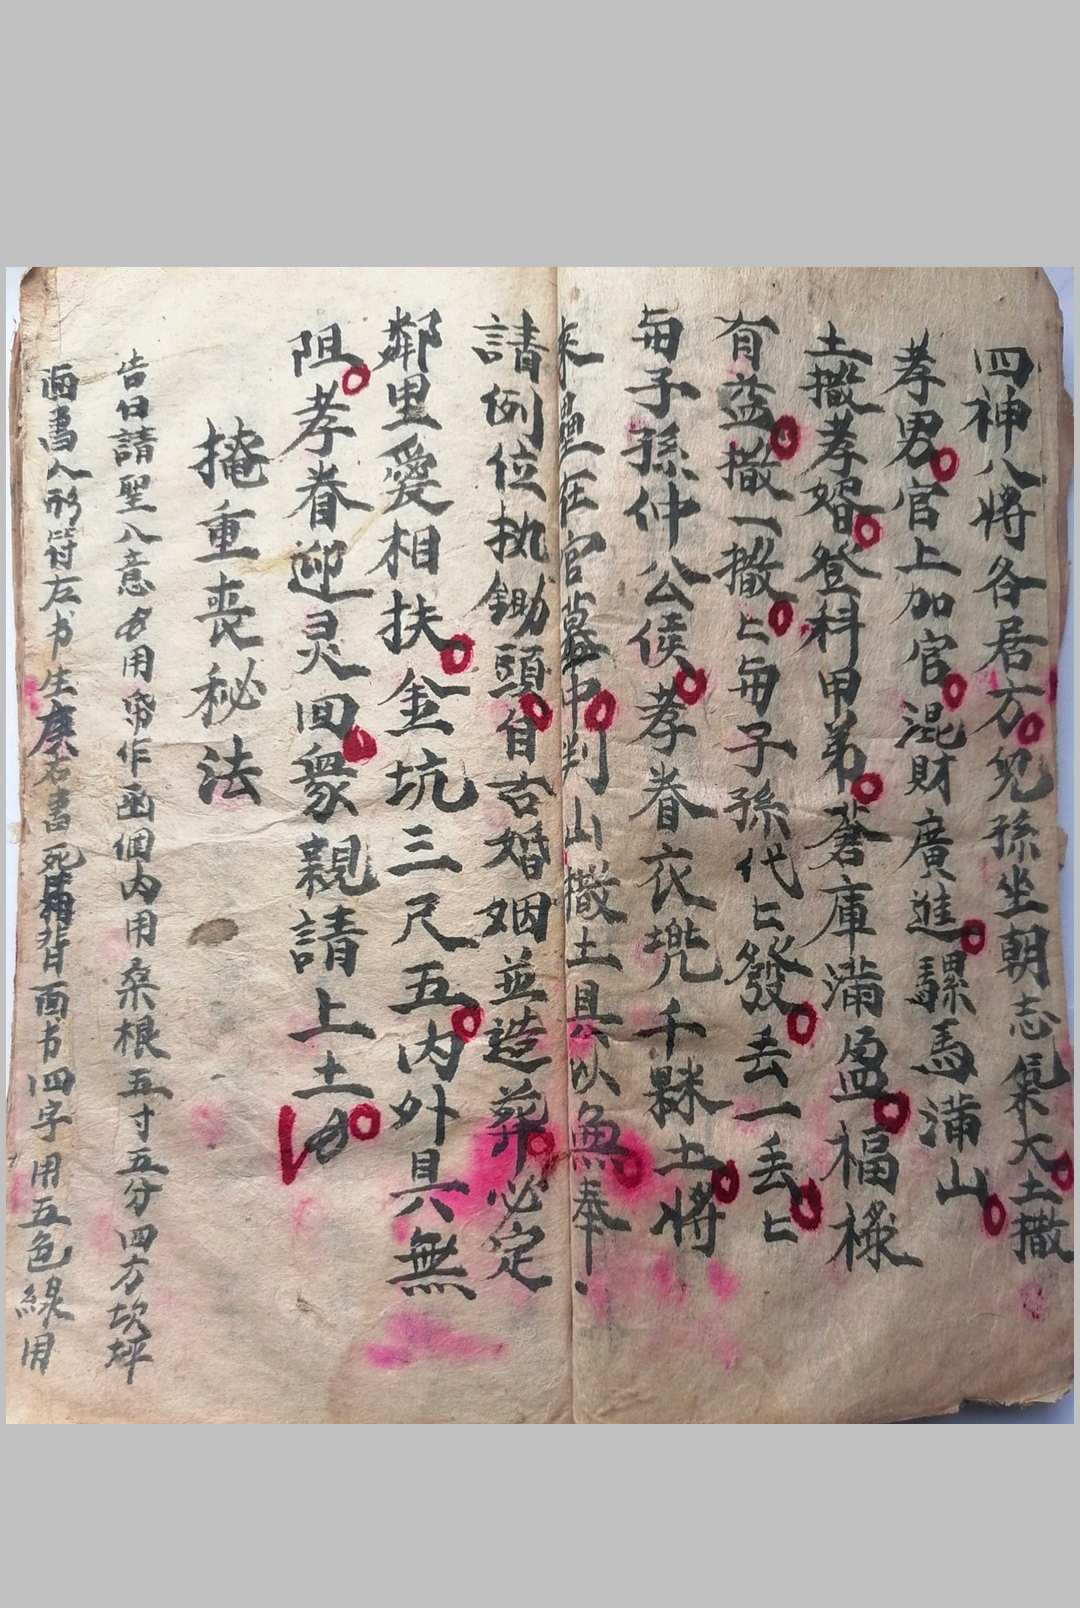 四神八將各居方兒孫坐朝志氣大土撒
孝男官上加官混財廣進騾馬滿山
土撒孝婿登科甲弟蒼庫滿盈福祿
有益撒一撒匕每子孫代匕發去一丢匕
每子孫仲公侯孝眷衣兠千縣土將
来壘在官墓中判山撒土具以奐奉
請例位执鋤頭自古婚姻並造葬必定
鄰里愛相扶金坑三尺五内外具無
阻孝眷迎灵回衆親請上土
掩重喪秘法
告曰請聖八意方用帋作函個内用桑根五寸五分四方坎坪
画書人形背左书生庚右書死背面书四字用五色線用